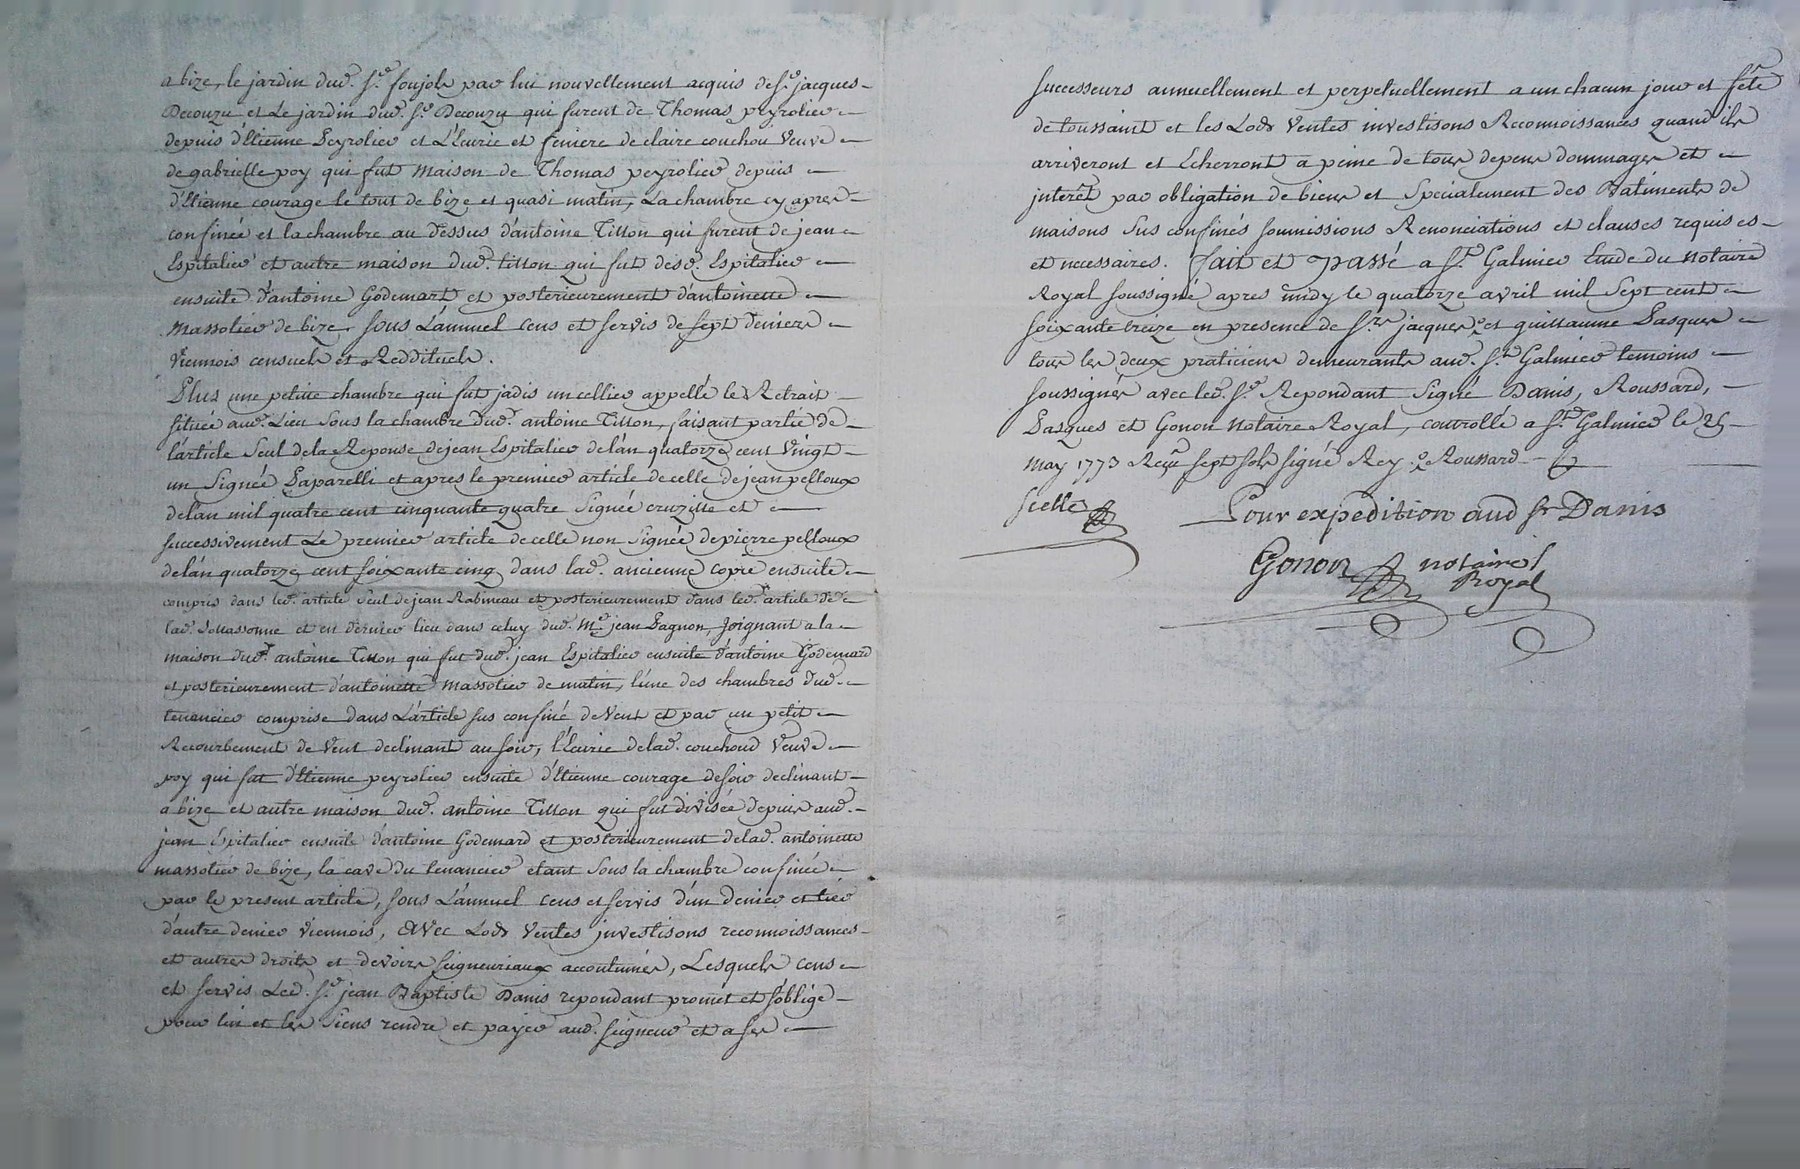 a bize, le jardin dud. Sr. foujols par lui nouvellement acquis de Sr. jacques
Decouzu et Le jardin dud. Sr. Decouzu qui furent de Thomas peyrolier
depuis d'Etienne Peyrolier et L'Ecurie et feniere de claire couchou Veuve
de gabrielle poy qui fut maison de Thomas peyrolier depuis
d'Etienne courage le tout de bize et quasi matin, La chambre cy apres
confinée et la chambre au dessus d'antoine Titton qui furent de jean
Espitalier et autre maison dud. titton qui fut desd. Espitalier
ensuite d'antoine Godemart et posterieurement d'antoinette
Massolier de bize, sous L'annuel cens et servis de sept deniers
Viennois censuels et Reddituels.
Plus une petite chambre qui fut jadis un cellier appellé le Retrait
située aud. Lieu sous la chambre dud. antoine Titton, faisant partie de
l'article seul de la Reponse de jean Espitalier de l'an quatorze cent Vingt
un Signée Paparelli et apres le premier article de celle de jean pelloux
de l'an mil quatre cent cinquante quatre Signée cruzille et
successivement Le premier article de celle non Signée de pierre pelloux
de l'an quatorze cent soixante cinq dans lad. ancienne copie ensuite
compris dans led. article seul de jean Rabineau et posterieurement dans led. article de
lad. et en dernier lieu dans celuy dud. Me. jean Pagnon, joignant a la
maison dud. antoine Titton qui fut dud. jean Espitalier ensuite d'antoine Godemard
et posterieurement d'antoinette Massolier de matin, l'une des chambres dud.
tenancier comprise dans L'article sus confiné de Vent et par un petit
Recourbement de Vent declinant au soir, l'Ecurie de lad. couchoud Veuve
poy qui fut d'Etienne peyrolier ensuite d'Etienne courage de soir declinant
a bize et autre maison dud. antoine Titton qui fut divisée depuis aud.
jean Espitalier ensuite d'antoine Godemard et posterieurement de lad. antoinette
massolier de bize, la cave du tenancier etant sous la chambre confinée
par le present article, sous L'annuel cens et servis d'un denier et tier
d'autre denier viennois, avec Lods Ventes investisons reconnoissances
et autres droits et devoirs seigneuriaux accoutumés, Lesquels cens
et servis Led. Sr. jean Baptiste Danis repondant promet et s'oblige
pour lui et les Siens rendre et payer aud. seigneur et a ses
successeurs annuellement et perpetuellement a un chacun jour et fête
de toussaint et les Lods Ventes investisons Reconnoissances quand ils
arriveront et Echerront a peine de tous depens dommages et
interêt par obligation de biens et Specialement des Batiments de
maisons sus confinés soumissions Renonciations et clauses requises
et necessaires. fait et passé a St. Galmier Etude du notaire
Royal soussigné apres midy le quatorze avril mil Sept cent
soixante treize en presence de Srs. jacques et guillaume Pasques
tous les deux praticiens demeurants aud. St. Galmier temoins
soussignés avec led. Sr. Repondant Signé Danis, Roussard,
Pasques et Gonon notaire Royal, controllé a St. Galmier le 25
may 1773 Reçu sept sols signé Rey. Roussard
scellé
Pour expedition aud Sr Danis
Gonon notaire
Royal